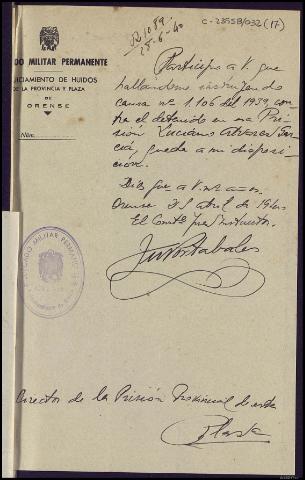 C-23558/032 (17)
R 1089
28-6-40
DO MILITAR PERMANENTE
UICIAMIENTO DE HUIDOS
DE LA PROVINCIA Y PLAZA
DE
ORENSE
Núm.
Participo a V. que
hallandome instruyendo
causa nº 1.106 del 1939 con-
tra el detenido en esa Pri-
sión Luciano Alvarez Gar-
cía, queda a mi disposi-
ción.
Dios gue a V. ms. años.
Orense 21 abril de 1940
El Comte Juez Instructor.
JUZGADO MILITAR PERMANENTE
Director de la Prisión Provincial de esta
Plaza